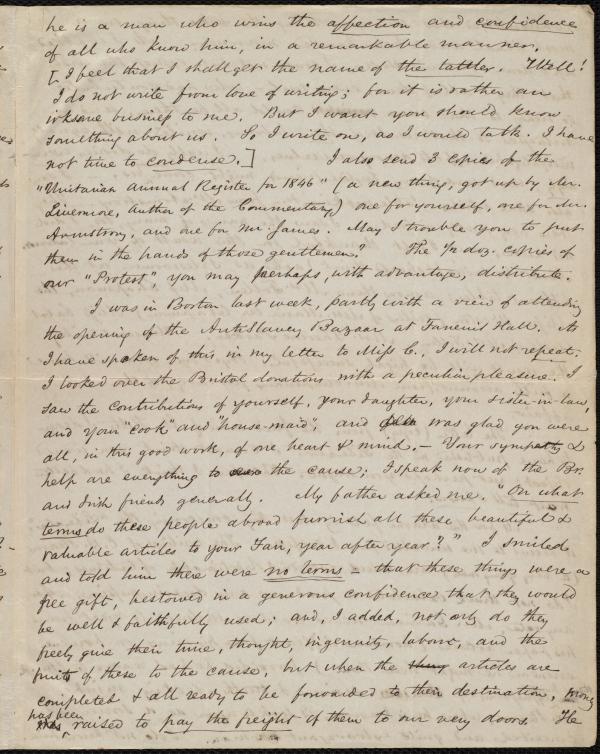 he is a man who wins the affection and confidence
of all who know him, in a remarkable manner.
[I feel that I shall get the name of the tattler. Well!
I do not write from love of writing; for it is rather an
irksome business to me. But I want you should know
something about us. So I write on, as I would talk. I have
not time to condense.] I also send 3 copies of the
"Unitarian Annual Register for 1846" (a new thing, got up by Mr.
Livermore, Author of the Commentary) one for yourself, one for Mr.
Armstrong, and one for Mr. James. May I trouble you to put
them in the hands of those gentlemen? The 1/2 doz. copies of
our "Protest", you may perhaps, with advantage, distribute.
I was in Boston last week, partly with a view of attending
the opening of the AntiSlavery Bazaar at Faneuil Hall. As
I have spoken of this in my letter to Miss C., I will not repeat.
I looked over the Bristol donations with a peculiar pleasure. I
saw the contributions of yourself, your daughter, your sister-in-law,
and your "cook" and "house-maid", and was glad you were
all, in this good work, of one heart & mind. – Your sympathy &
help are everything to the cause; I speak now of the Br.
and Irish friends generally. My father asked me. "On what
terms do these people abroad furnish all these beautiful &
valuable articles to your Fair, year after year?" I smiled
and told him there were no terms – that these things were a
free gift, bestowed in a generous confidence that they would
be well & faithfully used; and, I added, not only do they
freely give their time, thought, ingenuity, labour, and the
fruits of these to the cause, but when the articles are
completed & all ready to be forwarded to their destination, money
has been raised to pay the freight of them to our very doors. He